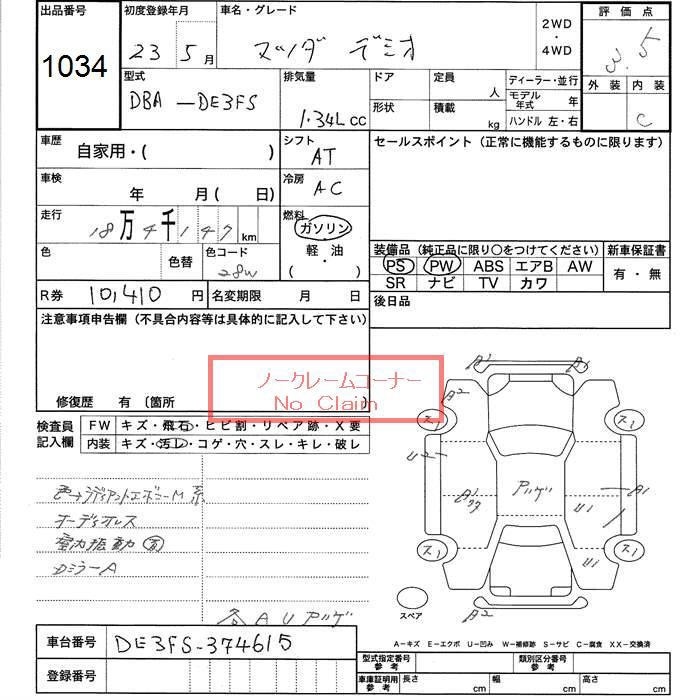 出品番号
1034
初度登録年月
23 5月
車名・グレード
マツダ デミオ
2WD
・
4WD
評価点
3.5
外装 内装
C
型式
DBA-DE3FS
排気量
1.34L cc
ドア
定員
人
形状
積載
kg
ディーラー・並行
モデル年式 年
ハンドル 左・右
車歴
自家用・( )
シフト
AT
セールスポイント（正常に機能するものに限ります）
車検
年 月( 日)
冷房
AC
走行
18万4千147km
燃料
ガソリン
軽・油
( ・ )
色
色替
色コード
28W
装備品（純正品に限り○をつけてください）
新車保証書
PS PW ABS エアB AW
SR ナビ TV カワ
有・無
R券 10,410円
名変期限 月 日
後日品
注意事項申告欄（不具合内容等は具体的に記入して下さい）
ノークレームコーナー
No Claim
修復歴 有 〔箇所
検査員記入欄
FW キズ・飛石・ヒビ割・リペア跡・X要
内装 キズ・汚レ・コゲ・穴・スレ・キレ・破レ
色→ラディアントエボニーM系
オーディオレス
室内振動 有
DミラーA
各AUアリゲ
A1 A1
A2 A2
ス1 ス1
U2
アリゲ
A1
U1
ス1 ス1
U1
A2
スペア
A-キズ E-エクボ U-凹み W-補修跡 S-サビ C-腐食 XX-交換済
車台番号
DE3FS-374615
登録番号
型式指定番号参考
類別区分番号参考
車庫証明用参考
長さ cm
幅 cm
高さ cm